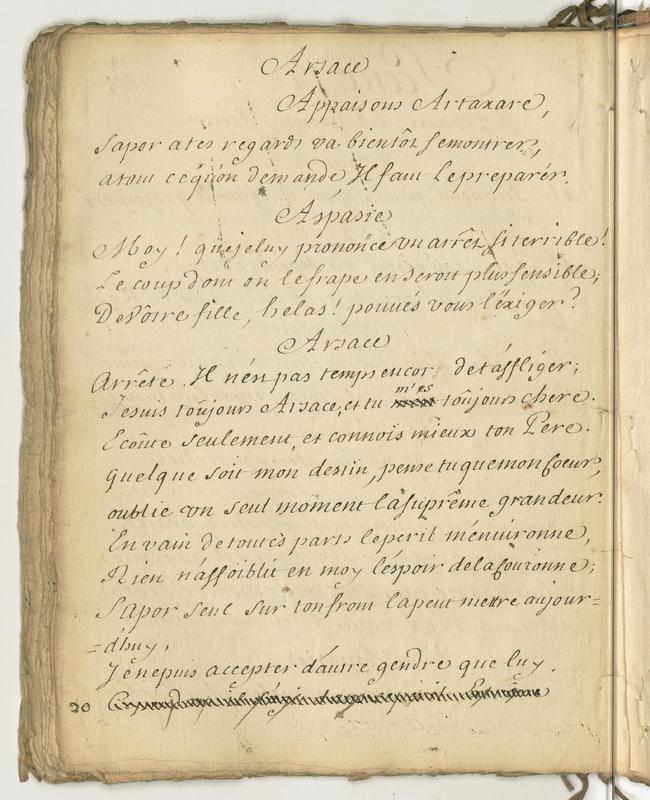 Arsace
Appaisons Artaxare,
Sapor a tes regards va bientôt se montrer,
a tout ce qu'on demande, Il faut Le preparér.
Aspasie
Moy! que je luy prononce vn arrêt si terrible!
Le coup dont on le frape en seroit plus sensible;
De Vôtre fille, hélas! pouués vous l'éxiger?
Arsace
Arrête. Il n'est pas temps encor de t'affliger;
Je suis toûjours Arsace, et tu m'es toûjours chere.
Ecoûte seulement, et connois mieux ton Pere.
Quelque soit mon destin, pense tu que mon Coeur,
oublie vn seul moment la suprême grandeur.
En vain de toutes parts le perit m'enuironne,
Rien n'affoiblit en moy l'éspoir de la Couronne;
Sapor seul sur ton front la peut mettre aujour=
=d'huy,
Je ne puis accepter d'autre gendre que luy.
20